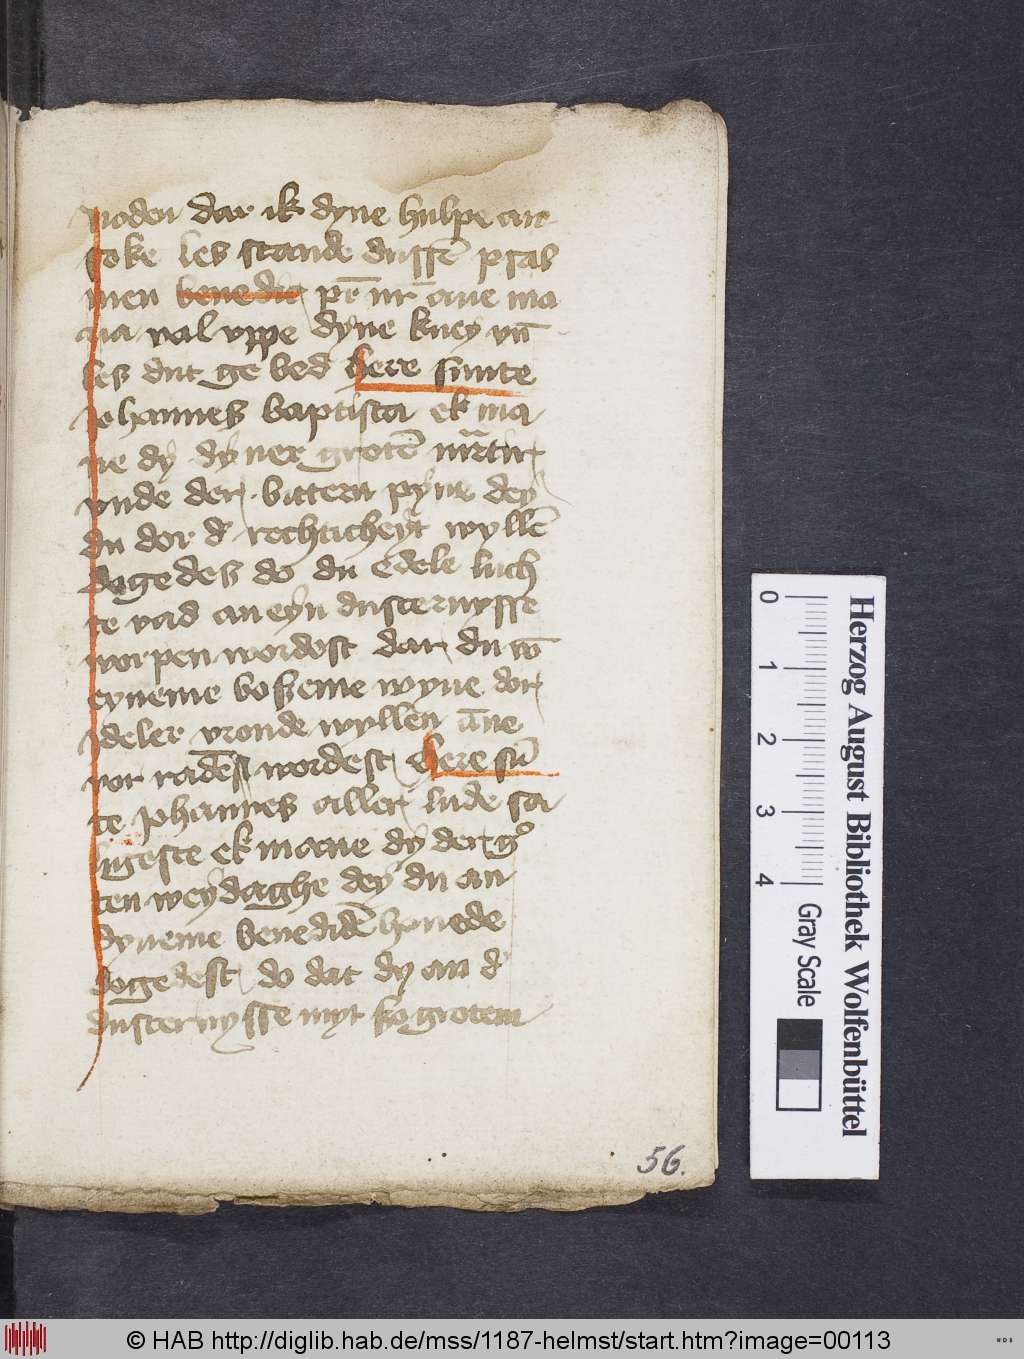 noden dar ik dyne hulpe an
soke les stande dussē psal
men benedic pr̄ nr̄ aue ma
ria val vppe dyne kney vn̄
les dut ge bed here sunte
Johannes baptista ek ma
ne dy dyner grotē mr̄tir
vnde der bittern pyne dey
du dor d' rechticheyt wyllē
doge des do du edele luch
te vād an eyn dusternysse
worpen wordost dar du vā
eyneme bosseme wyue dor
ydeler vronde wyllen āne
vor radēs wordest here sū
te Johannes aller lude sa
ligeste ek mane dy der gᵒ
ten weydaghe dey du an
dyneme benedidē houede
dogedest do dat dy an d'
dusternysse myt so grotem
56.
Herzog August Bibliothek Wolfenbüttel
0 1 2 3 4
Gray Scale
© HAB http://diglib.hab.de/mss/1187-helmst/start.htm?image=00113
WDB